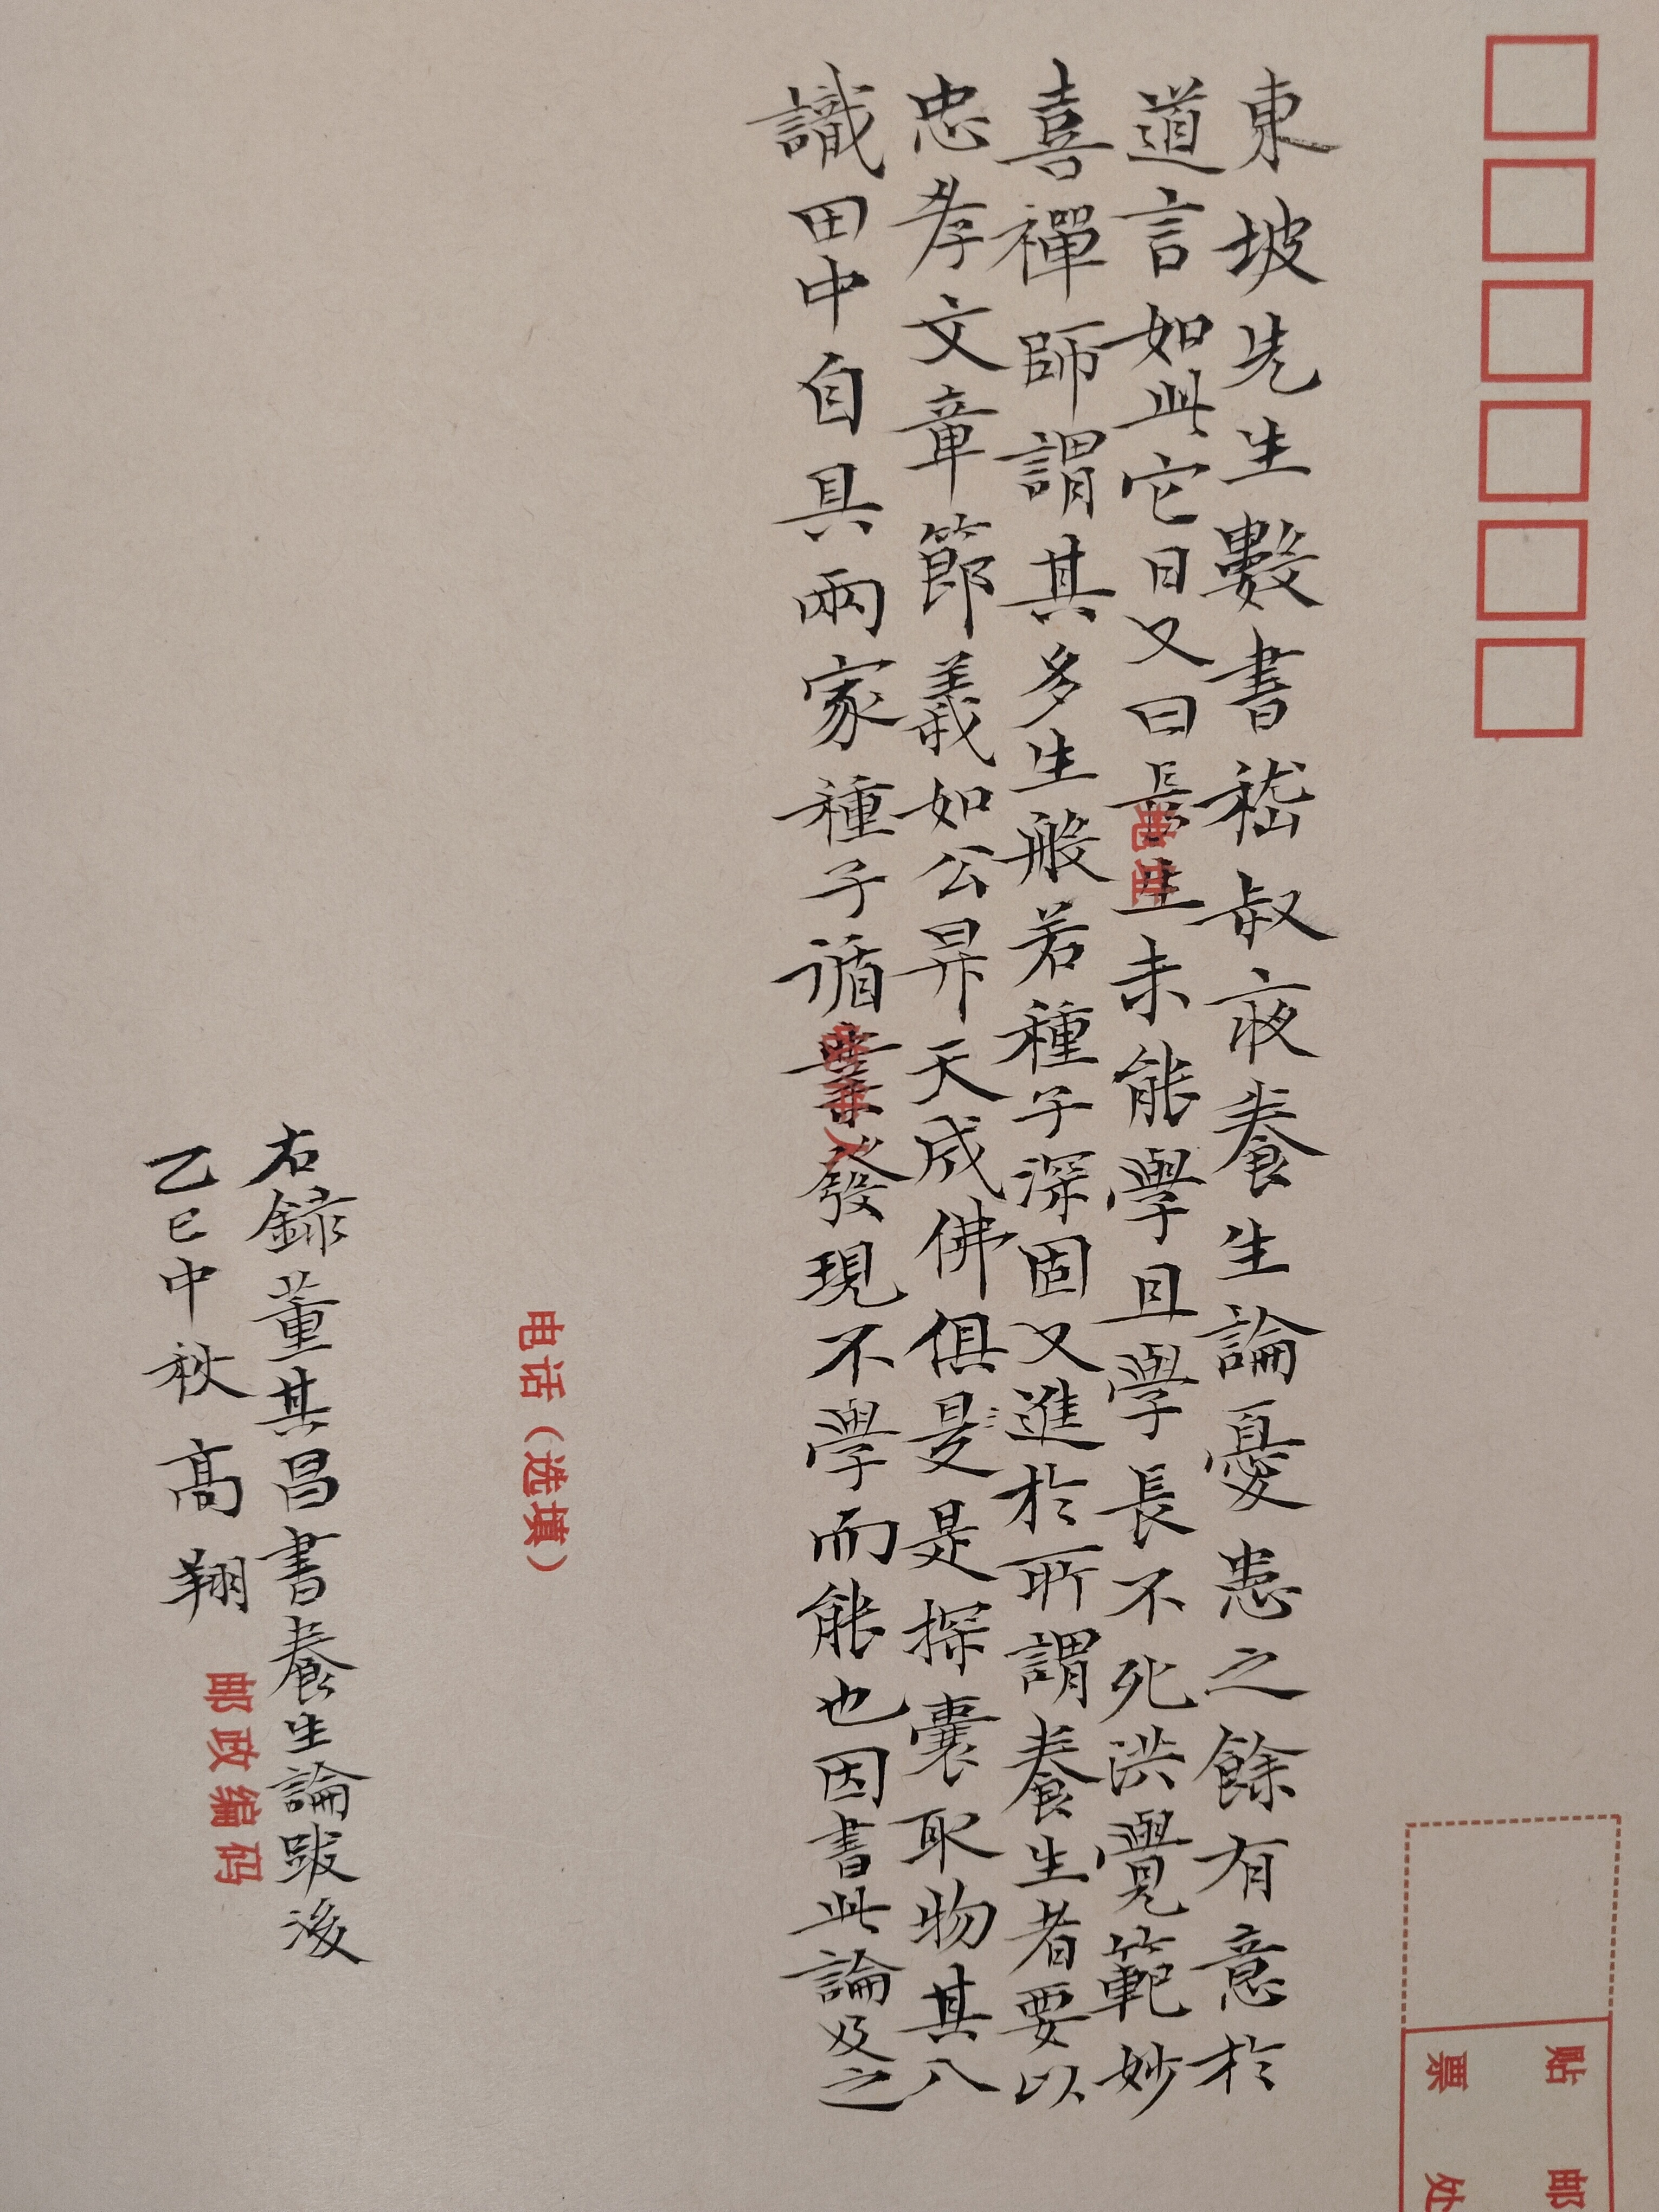 東坡先生數書嵇叔夜養生論憂患之餘有意於
道言如此它日又曰長生未能學且學長不死洪覺範妙
喜禪師謂其多生般若種子深固又進於所謂養生者要以
忠孝文章節義如公昇天成佛俱是是探囊取物其八
識田中自具兩家種子循業發現不學而能也因書此論及之
右錄董其昌書養生論跋後
乙巳中秋 高翔
地址
电话（选填）
邮政编码
贴邮
票处